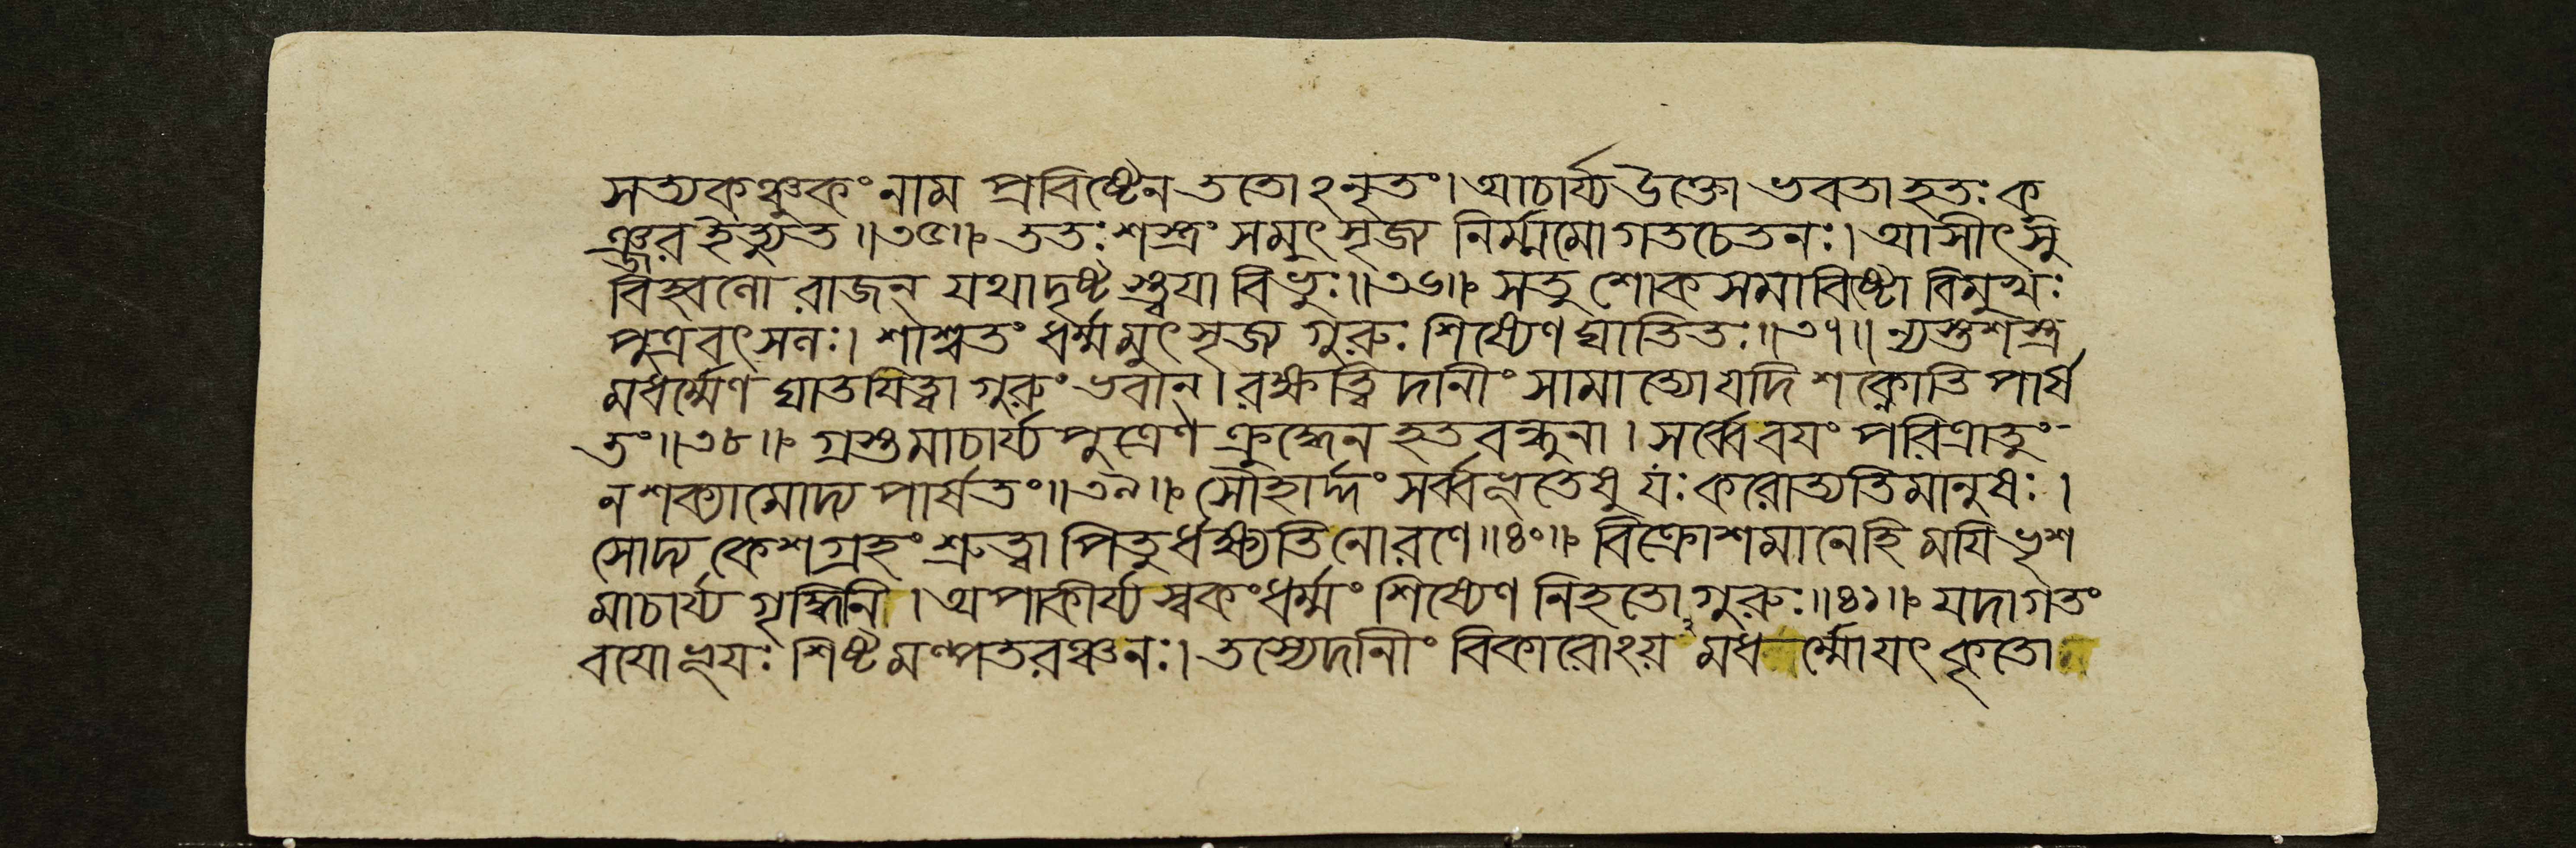 সত্যকঞ্চুকং নাম প্রবিষ্টেন ততোঽনৃতং। আচার্য্য উক্তো ভবতা হতঃ ক
ঞ্জর ইত্যুত॥৩৫॥ ততঃ শস্ত্রং সমুৎসৃজ্য নির্ম্মমোগতচেতনঃ। আসীৎ সু
বিহ্বলো রাজন্ যথাদৃষ্টস্ত্বয়া বিভুঃ॥৩৬॥ সতু শোকসমাবিষ্টো বিমুখঃ
পুত্রবৎসলঃ। শাশ্বতং ধর্ম্মমুৎসৃজ্য গুরুঃ শিষ্যেণ ঘাতিতঃ॥৩৭॥ ন্যস্তশস্ত্র
মধর্ম্মেণ ঘাতযিত্বা গুরুং ভবান্। রক্ষত্বিদানীং সামাত্যোযদি শক্নোতি পার্ষ
তং॥৩৮॥ গ্রস্তমাচার্য্যপুত্রেণ ক্রুদ্ধেন হতবন্ধুনা। সর্ব্বে বযং পরিত্রাতুং
ন শক্যামোদ্য পার্ষতং॥৩৯॥ সৌহার্দ্দং সর্ব্বভূতেষু যঃ করোত্যতিমানুষঃ।
সোদ্য কেশগ্রহং শ্রুত্বা পিতুর্ধক্ষ্যতি নোরণে॥৪০॥ বিক্রোশমানেহি মযি ভৃশ
মাচার্য্য গৃদ্ধিনি। অপাকীর্য্য স্বকং ধর্ম্মং শিষ্যেণ নিহতো গুরুঃ॥৪১॥ যদাগতং
বযোভূযঃ শিষ্টমল্পতরঞ্চনঃ। তস্যেদানীং বিকারোঽয়মধর্ম্মোযৎ কৃতো